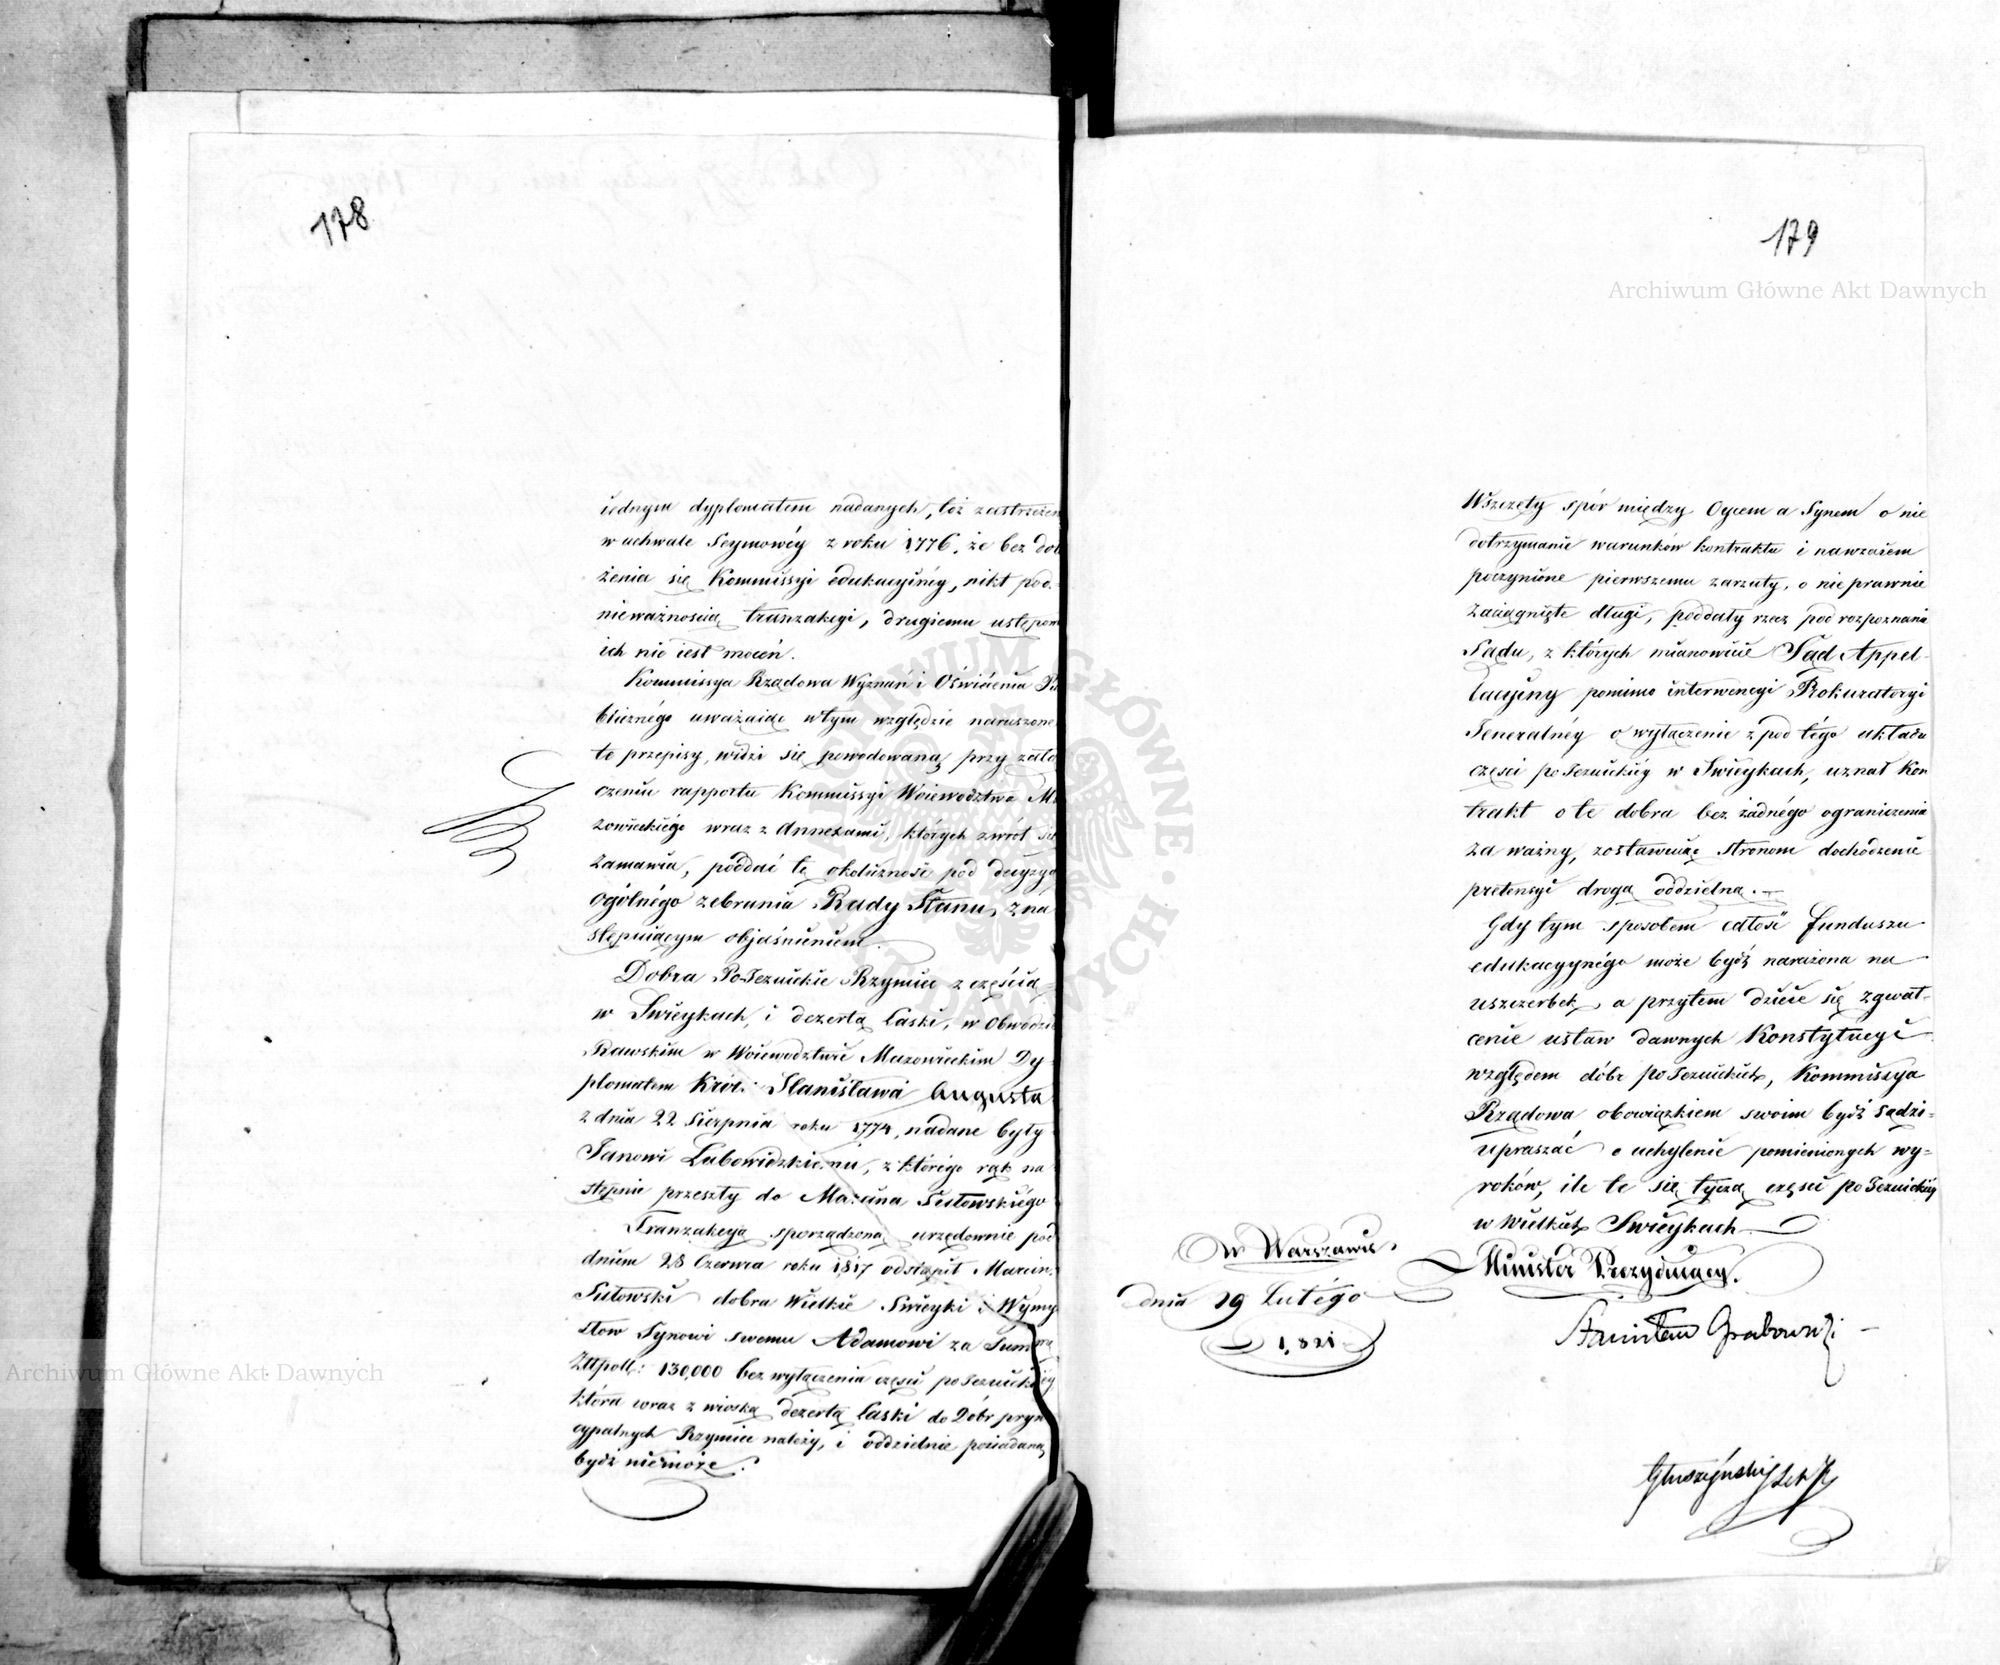 178
iednym dyplomatem nadanych, toż zastrzeżen
w uchwale Seymowéy z roku 1776, że bez doł
żenia się Kommissyi edukacyinéy, nikt pod
nieważnością tranzakcyi, drugiemu ustępow
ich nie iest mocén.
Kommissya Rządowa Wyznań i Oświécenia Pu
blicznégo uważaiąc w tym względzie naruszone
te przepisy, widzi się powodowaną przy załą
czeniu rapportu Kommissyi Woiewodztwa Ma
zowieckiégo wraz z Annexami, których zwrót się
zamawia, poddać tę okoliczność pod decyzyą
ogólnégo zebrania Rady Stanu, z na
stępuiącym obiaśnieniem.
Dobra PoJezuickie Rzymiec z częścią
w Swieykach, i dezertą Laski, w Obwodzie
Rawskim w Woiewodztwie Mazowieckim Dy
plomatem Król: Stanisława Augusta
z dnia 22 Sierpnia roku 1774, nadane były
Janowi Lubowidzkiemu, z którégo rąk na
stępnie przeszły do Marcina Sutowskiégo
Tranzakcyą sporządzoną urzędownie pod
dniem 28 Czerwca roku 1817 odstąpił Marcin
Sutowski dobra Wielkie Swieyki i Wymy
słow Synowi swemu Adamowi za Summę
Złłpoll: 130,000 bez wyłączenia części poJezuickiéy
która wraz z wioską dezertą Laski do Dóbr pryn
cypalnych Rzymiec należy, i oddzielnie posiadaną
bydź niemoże.
179
Archiwum Główne Akt Dawnych
Wszczęty spór między Oycem a Synem o nie
dotrzymanie warunków kontraktu i nawzaiem
poczynione pierwszemu zarzuty, o nieprawnie
zaciągnięte długi, poddały rzecz pod rozpoznanie
Sądu, z których mianowicie Sąd Appel-
lacyiny pomimo interwencyi Prokuratoryi
Jeneralnéy o wyłączenie z pod tégo układu
części poJezuickiéy w Swieykach, uznał Kon
trakt o te dobra bez żadnégo ograniczenia
za ważny, zostawuiąc stronom dochodzenie
pretensyi drogą oddzielną.
Gdy tym sposobem całość funduszu
edukacyynégo może bydź narażona na
uszczerbek, a przytem dzieie się zgwał-
cenie ustaw dawnych Konstytucyi
względem dóbr poJezuickich, Kommissya
Rządowa obowiązkiem swoim bydź sądzi
upraszać o uchylenie pomienionych wy=
roków, ile te się tyczą części poJezuickiéy
w Wielkich Swieykach.
w Warszawie
dnia 19 Lutégo
1,821
Minister Prezyduiący.
Stanisław Grabowski
Głuszyński
Archiwum Główne Akt Dawnych
ARCHIWUM GŁÓWNE AKT DAWNYCH